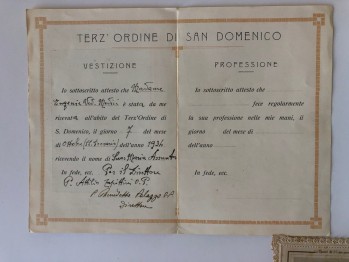 TERZ' ORDINE DI SAN DOMENICO
VESTIZIONE
Io sottoscritto attesto che Madame
Eugenie
è stata, da me
ricevuta all'abito del Terz'Ordine di
S. Domenico, il giorno 7 del mese
di Ottobre dell'anno 1936
ricevendo il nome di Suor Maria Assunta
In fede, ecc. Per il Direttore
P. Attilio O.P.
P. Benedetto Palazzo O.P.
Direttore
PROFESSIONE
Io sottoscritto attesto che
fece regolarmente
la sua professione nelle mie mani, il
giorno del mese di
dell'anno
In fede, ecc.